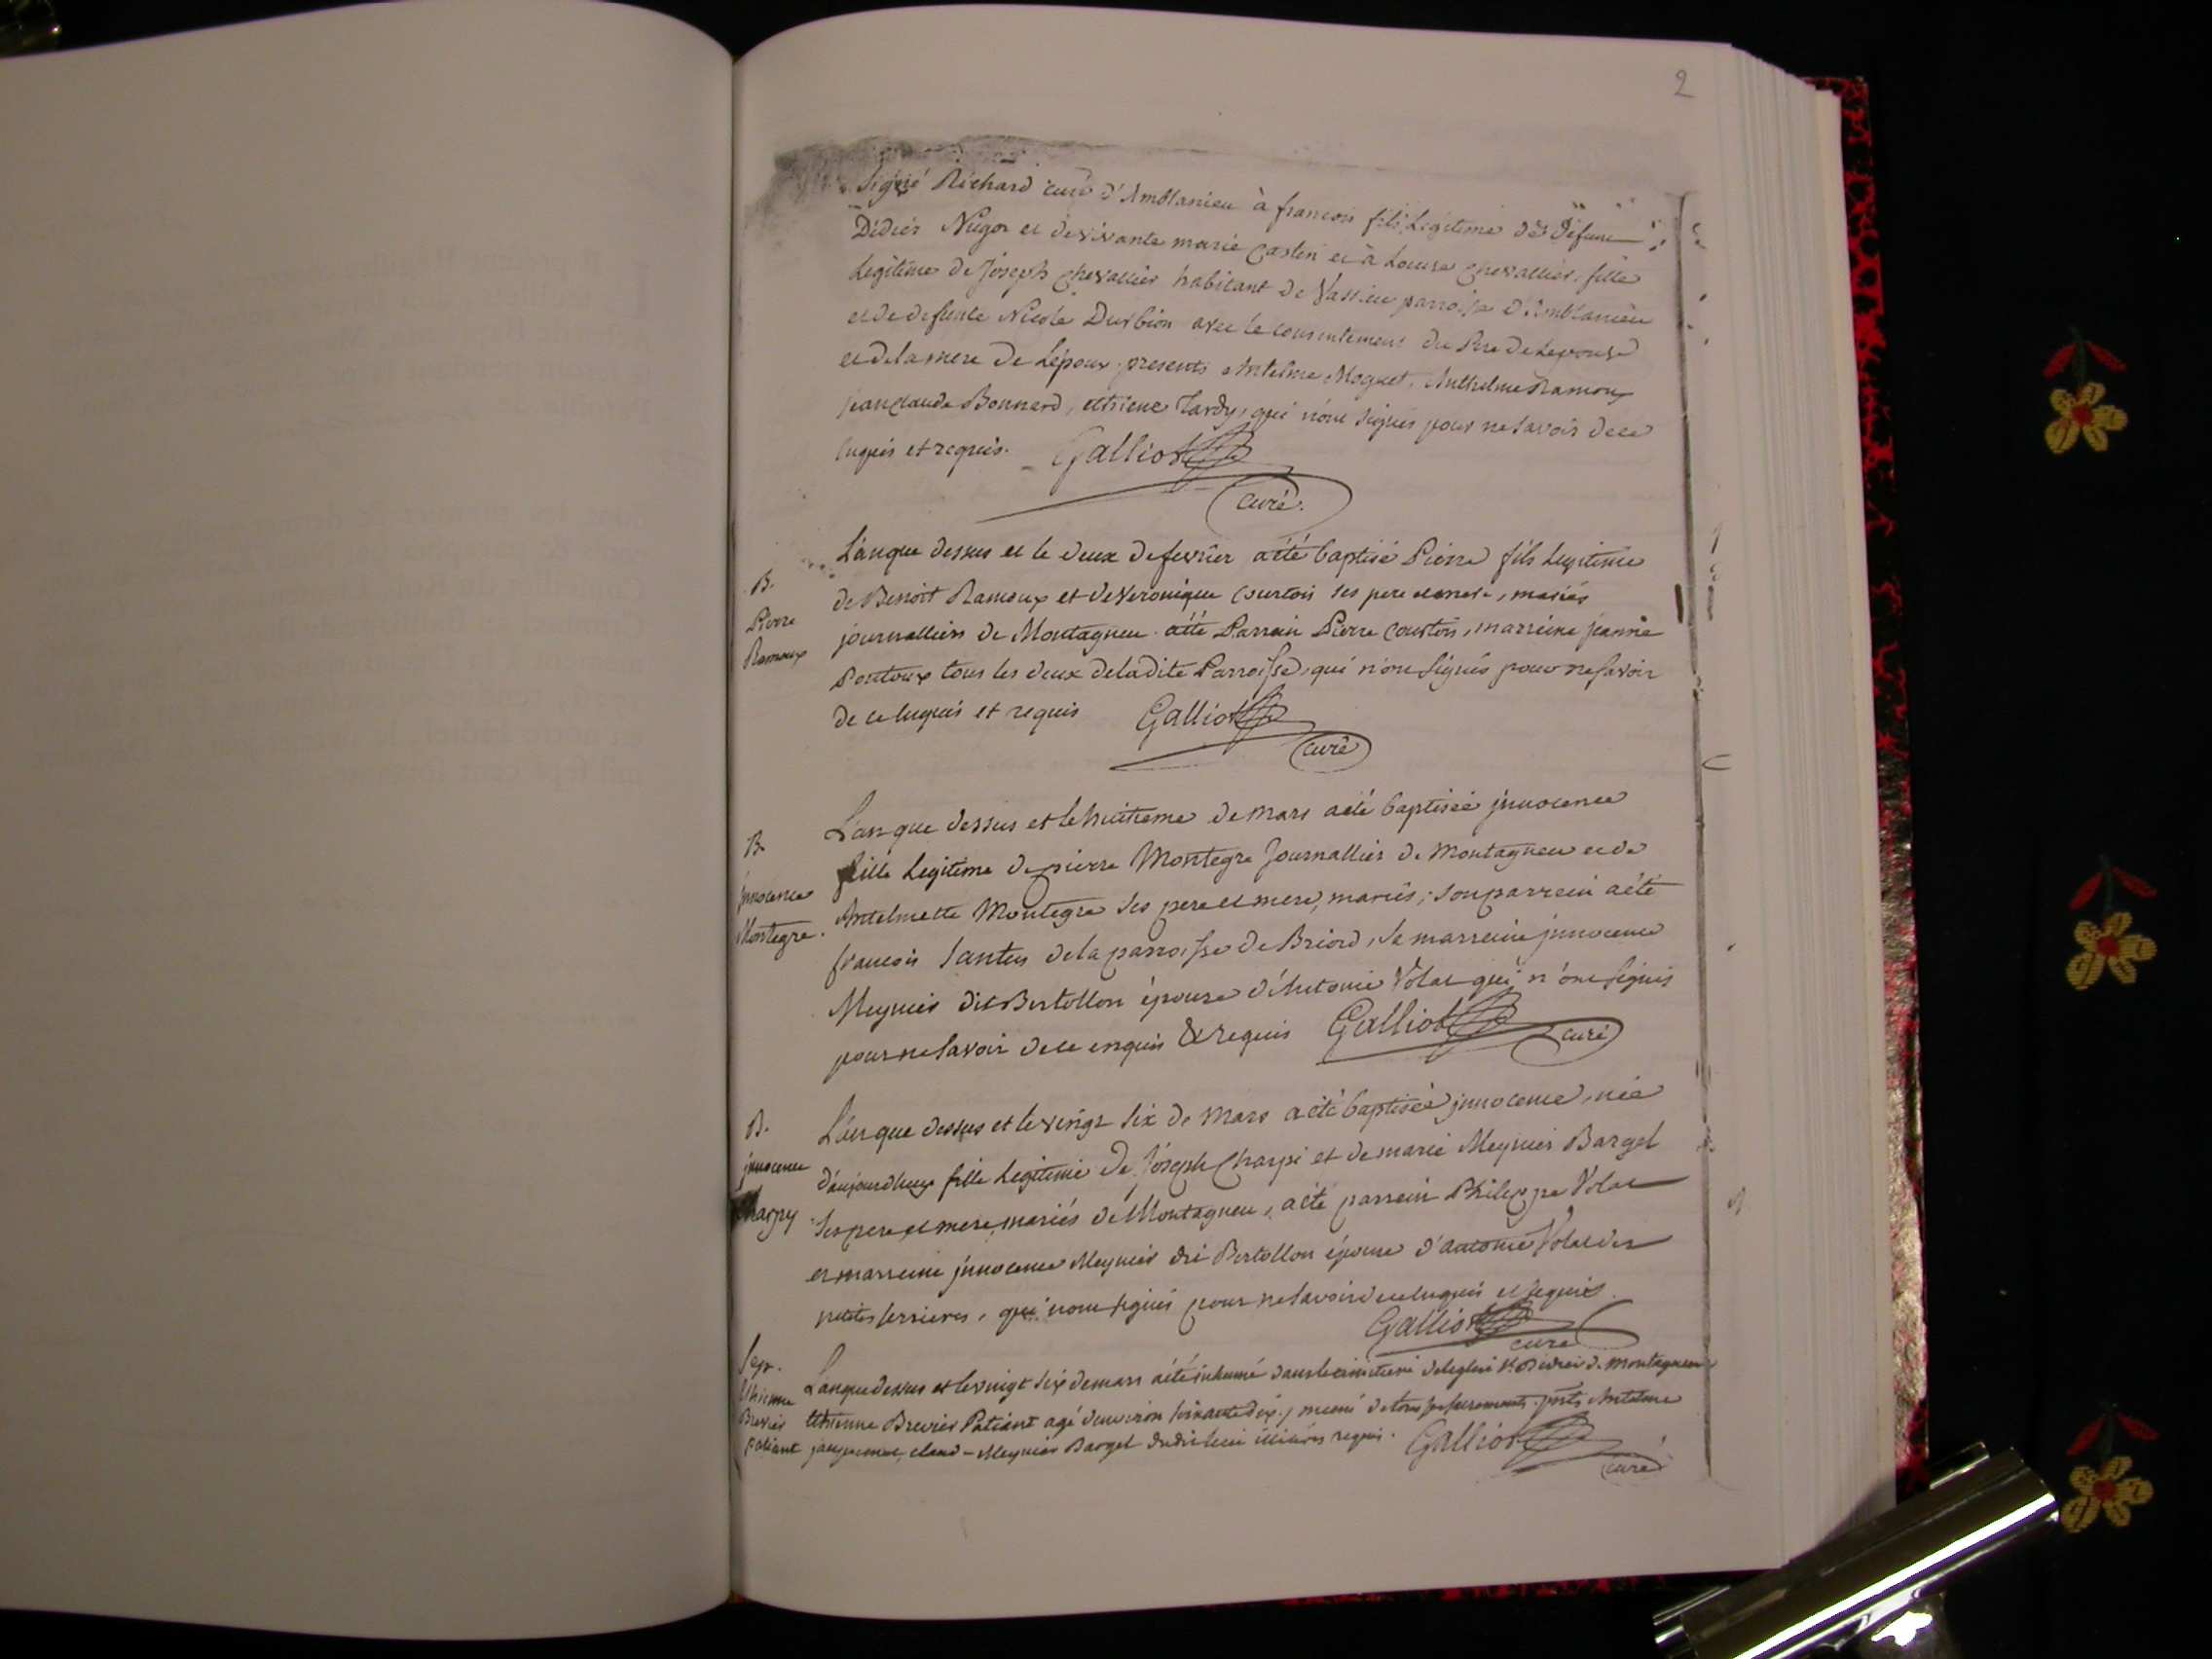 2
signé Richard curé d'Amblanieu à francois fils Legitime de Defunt
Didier Nugoz et de vivante marie Castin et à Louise Chevallier, fille
Legitime de Joseph Chevallier habitant de Vassieu parroisse d'Amblanieu
et de defunte Nicole Durbion avec le consentement du Pere de Lepouse
et de la mere de L'époux. presents Antelme Moguet, Anthelme Ramoux
jean claude Bonnard, ethiene Tardy, qui n'ont signés pour ne savoir de ce
enquis et requis. Galliot
curé.
L'an que dessus et le deux de fevrier a été baptisé Pierre fils Legitime
B.
de Benoit Ramoux et de Veronique Courtois ses pere et mere, mariés
Pierre
journalliers de Montagneu. a été Parrain Pierre Courtois, marreine jeanne
Ramoux
Pontoux tous les deux de ladite Parroisse, qui n'ont signés pour ne savoir
de ce enquis et requis Galliot
curé
L'an que dessus et le huitieme de mars a été baptiseé jnnocence
B.
fille Legitime de pierre Montegre Journallier de Montagneu et de
jnnocence
Antelmette Montegre ses pere et mere, mariés; son parrein a été
Montegre.
francois Santus de la parroisse de Briord, sa marreine jnnocence
Meynier dit Bertollon épouse d'Antoine Volat qui n'ont signés
pour ne savoir de ce enquis & requis Galliot curé
L'an que dessus et le vingt six de mars a été baptiseé jnnocence, neé
B.
d'aujourdhuy fille Legitime de Joseph Charpi et de marie Meynier Bargel
jnnocence
ses pere et mere, mariés de Montagneu, a été parrein Philippe Volat
Charpy
et marreine jnnocence Meynier dit Bertollon épouse d'antoine Volat des
petites serrieres, qui n'ont signés pour ne savoir de ce enquis et requis.
Galliot
curé
Sep.
L'an que dessus et le vingt six de mars a été inhumé dans le cimetiere de leglise St Didier de Montagneu
Ethienne
Ethienne Brevier Patiant agé d'environ soixante dix, muni de tous ses sacrements. pnts Antelme
Brevier
patiant
claud Meynier Bargel dudit lieu illitérés requis. Galliot
curé